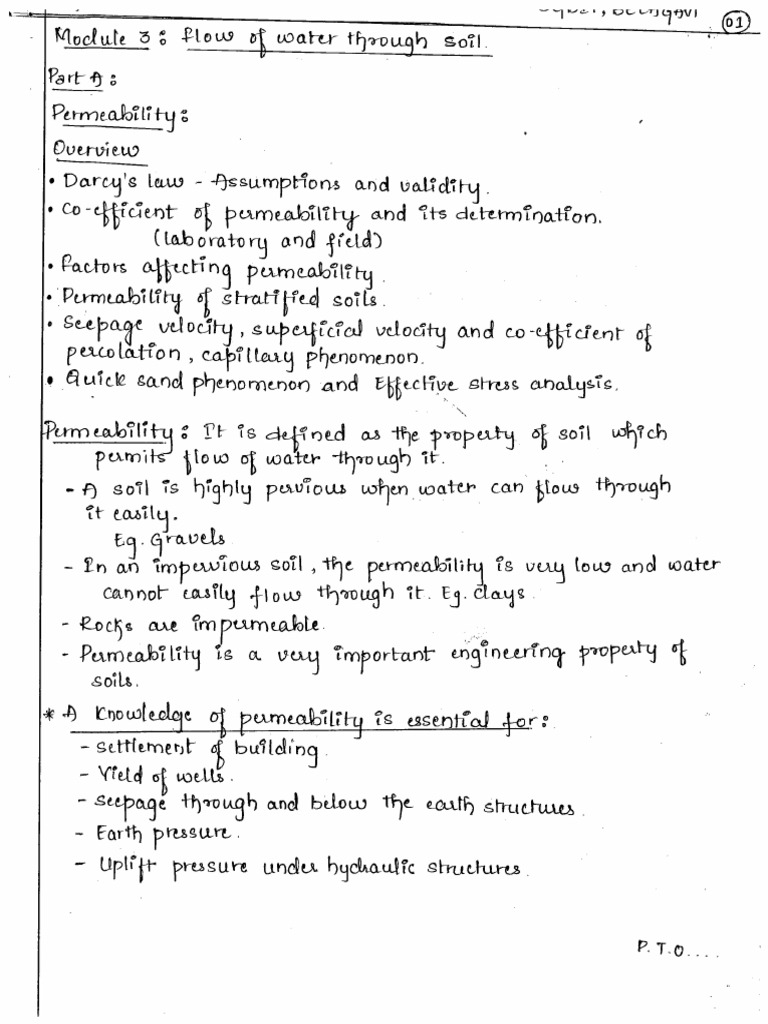 01
Module 3: Flow of water through soil.
Part A:
Permeability:
Overview
• Darcy's law - Assumptions and validity.
• Co-efficient of permeability and its determination.
(laboratory and field)
• Factors affecting permeability.
• Permeability of stratified soils.
• Seepage velocity, superficial velocity and co-efficient of
percolation, capillary phenomenon.
• Quick sand phenomenon and Effective stress analysis.
Permeability: It is defined as the property of soil which
permits flow of water through it.
- A soil is highly pervious when water can flow through
it easily.
Eg. Gravels
- In an impervious soil, the permeability is very low and water
cannot easily flow through it. Eg. Clays.
- Rocks are impermeable.
- Permeability is a very important engineering property of
soils.
* A knowledge of permeability is essential for:
- Settlement of building.
- Yield of wells.
- Seepage through and below the earth structures.
- Earth pressure.
- Uplift pressure under hydraulic structures.
P.T.O....